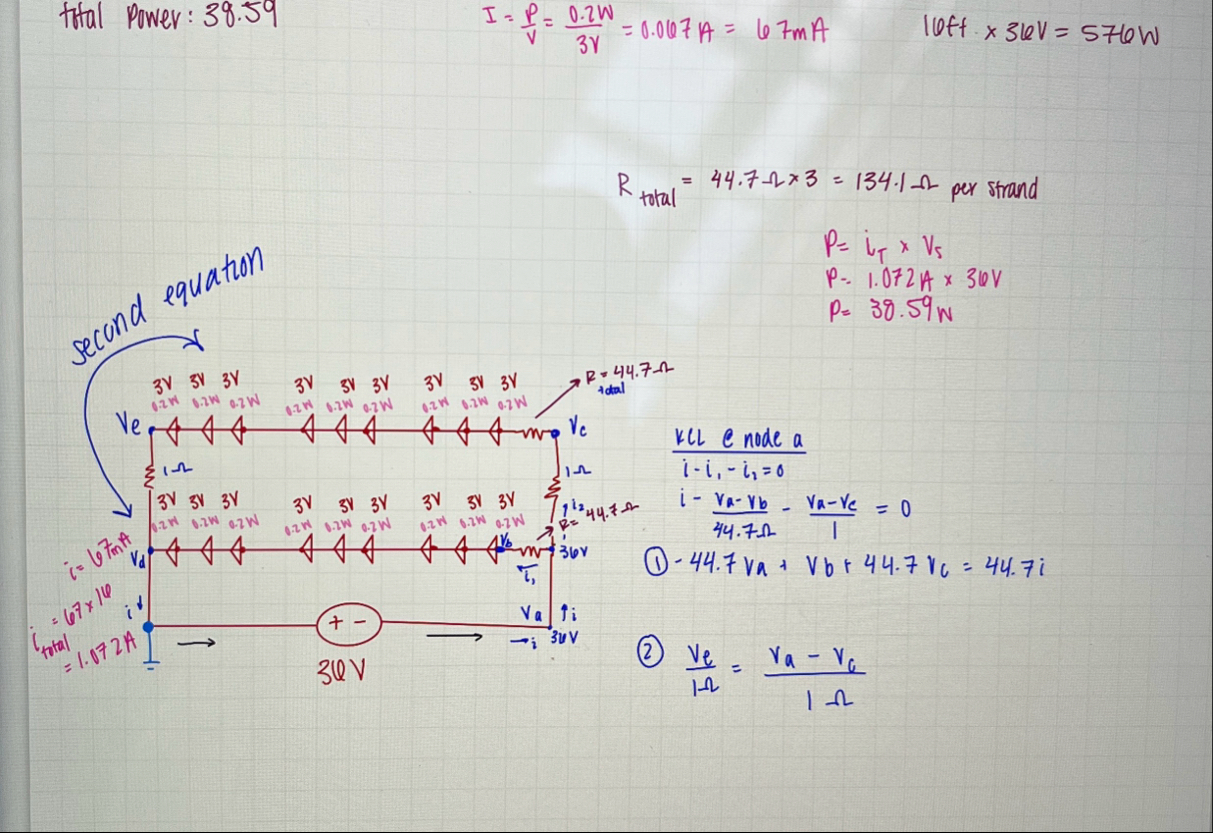 total Power: 38.59
I = P/V = 0.2W/3V = 0.067A = 67mA
16ft × 36V = 576W
R total = 44.7Ω×3 = 134.1Ω per strand
P= i_T × V_s
P= 1.072A × 36V
P= 38.59W
second equation
3V 3V 3V 3V 3V 3V 3V 3V 3V
0.2W 0.2W 0.2W 0.2W 0.2W 0.2W 0.2W 0.2W 0.2W
R = 44.7Ω
total
Ve
Vc
1Ω
1Ω
3V 3V 3V 3V 3V 3V 3V 3V 3V
0.2W 0.2W 0.2W 0.2W 0.2W 0.2W 0.2W 0.2W 0.2W
↑i₂
R= 44.7Ω
Vd
Vb
36V
i₁
i = 67mA
i total = 67×16
= 1.072A
i↓
Va ↑i
→i 36V
+ -
36V
KCL @ node a
i-i₁-i₂=0
i - (Va-Vb)/44.7Ω - (Va-Vc)/1 = 0
① -44.7Va + Vb + 44.7Vc = 44.7i
② Ve/1Ω = (Va - Vc)/1Ω